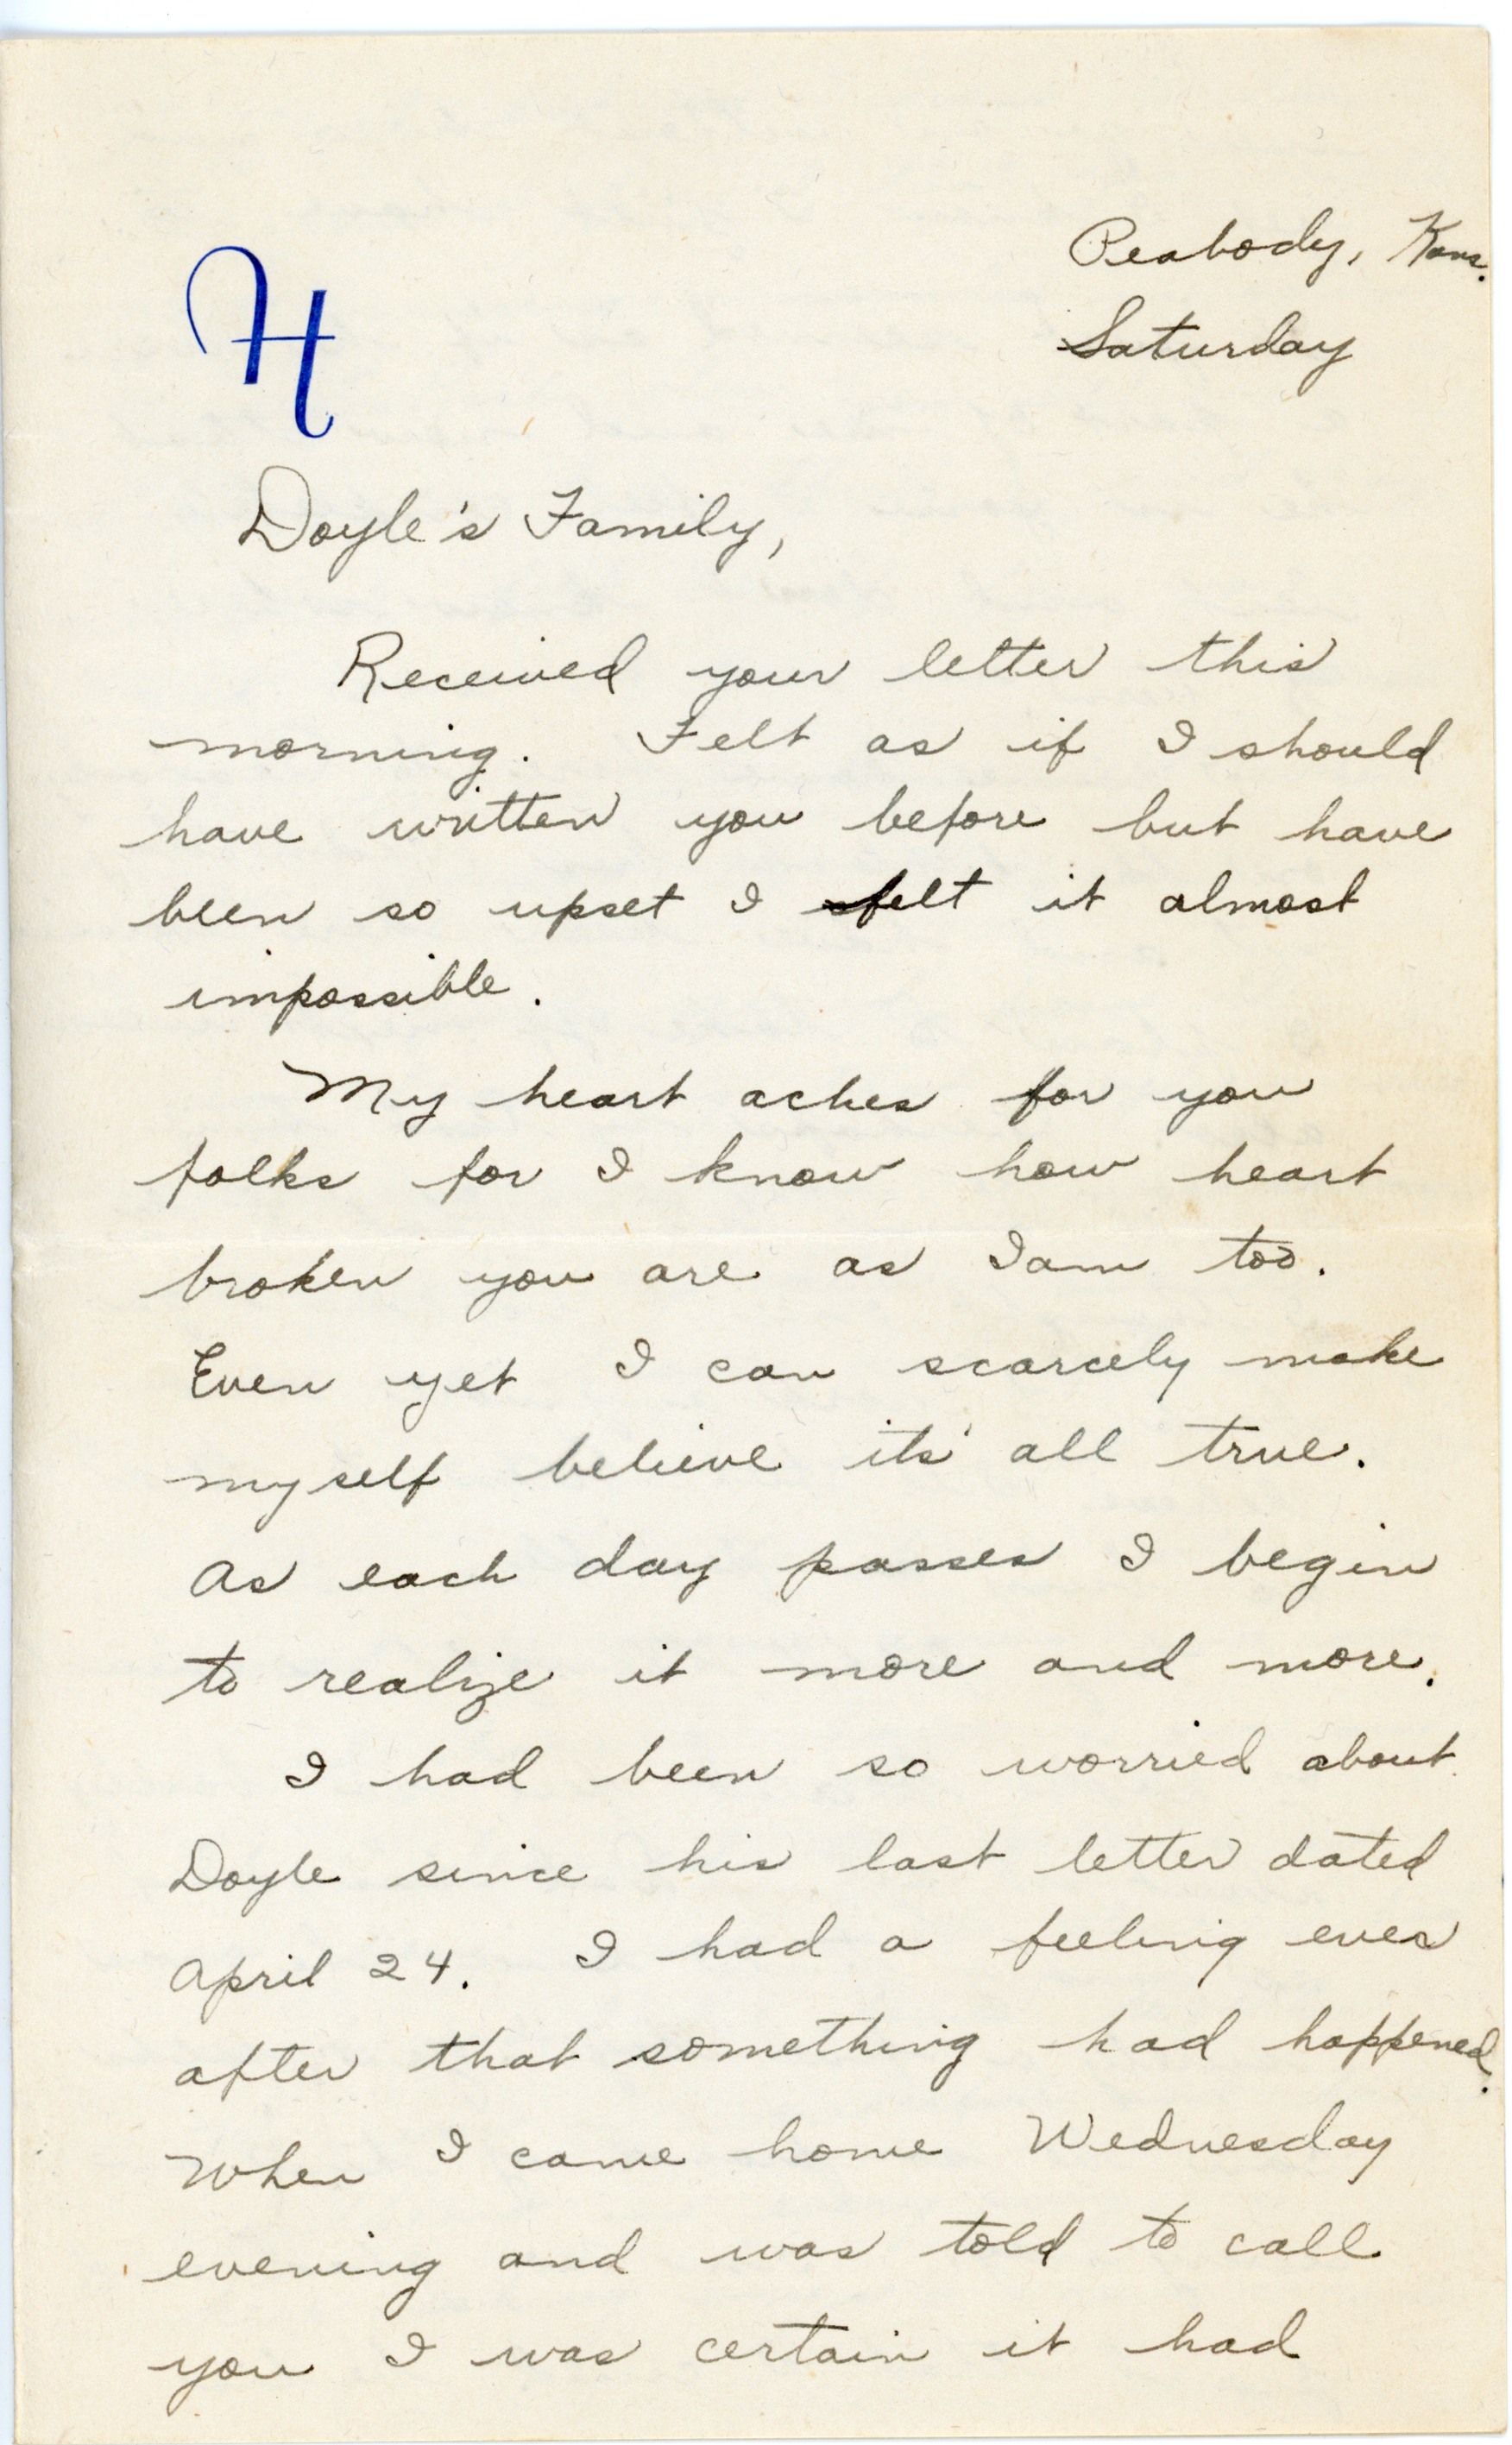 Peabody, Kans.
Saturday
H
Doyle's Family,
Received your letter this
morning. Felt as if I should
have written you before but have
been so upset I felt it almost
impossible.
My heart aches for you
folks for I know how heart
broken you are as I am too.
Even yet I can scarcely make
myself believe its' all true.
As each day passes I begin
to realize it more and more.
I had been so worried about
Doyle since his last letter dated
April 24. I had a feeling ever
after that something had happened.
When I came home Wednesday
evening and was told to call
you I was certain it had